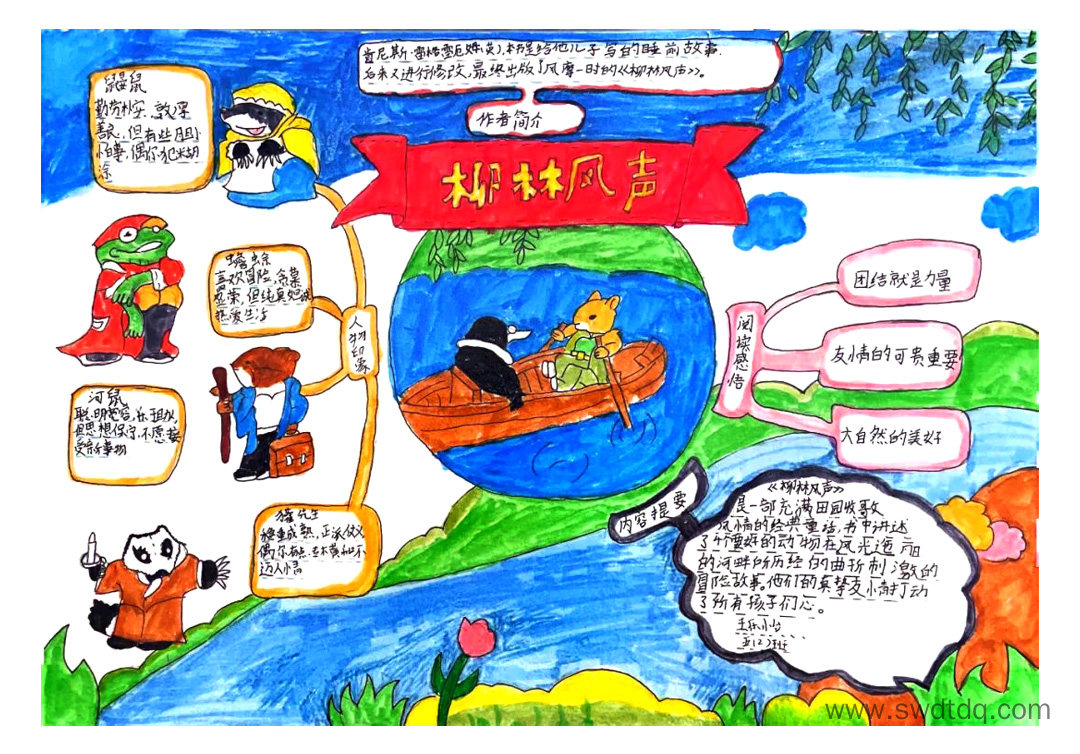 肯尼斯·格雷厄姆(英),本书是给他儿子写的睡前故事.
后来又进行修改,最终出版了风靡一时的《柳林风声》。
作者简介
柳林风声
鼹鼠
勤劳朴实,敦厚
善良,但有些胆小
怕事,偶尔犯糊
涂
蟾蜍
喜欢冒险,贪慕
虚荣,但纯真坦诚
热爱生活
人物印象
河鼠
但思想保守,不愿接
受新事物
獾先生
稳重成熟,正派仗义
迈人情
阅读感悟
团结就是力量
友情的可贵重要
大自然的美好
内容提要
《柳林风声》
是一部充满田园牧歌
风情的经典童话,书中讲述
了个要好的动物在风光旖旎
的河畔所历经的曲折刺激的
冒险故事。他们的真挚友情打动
了所有孩子们心。
五(2)班
www.swdtdq.com